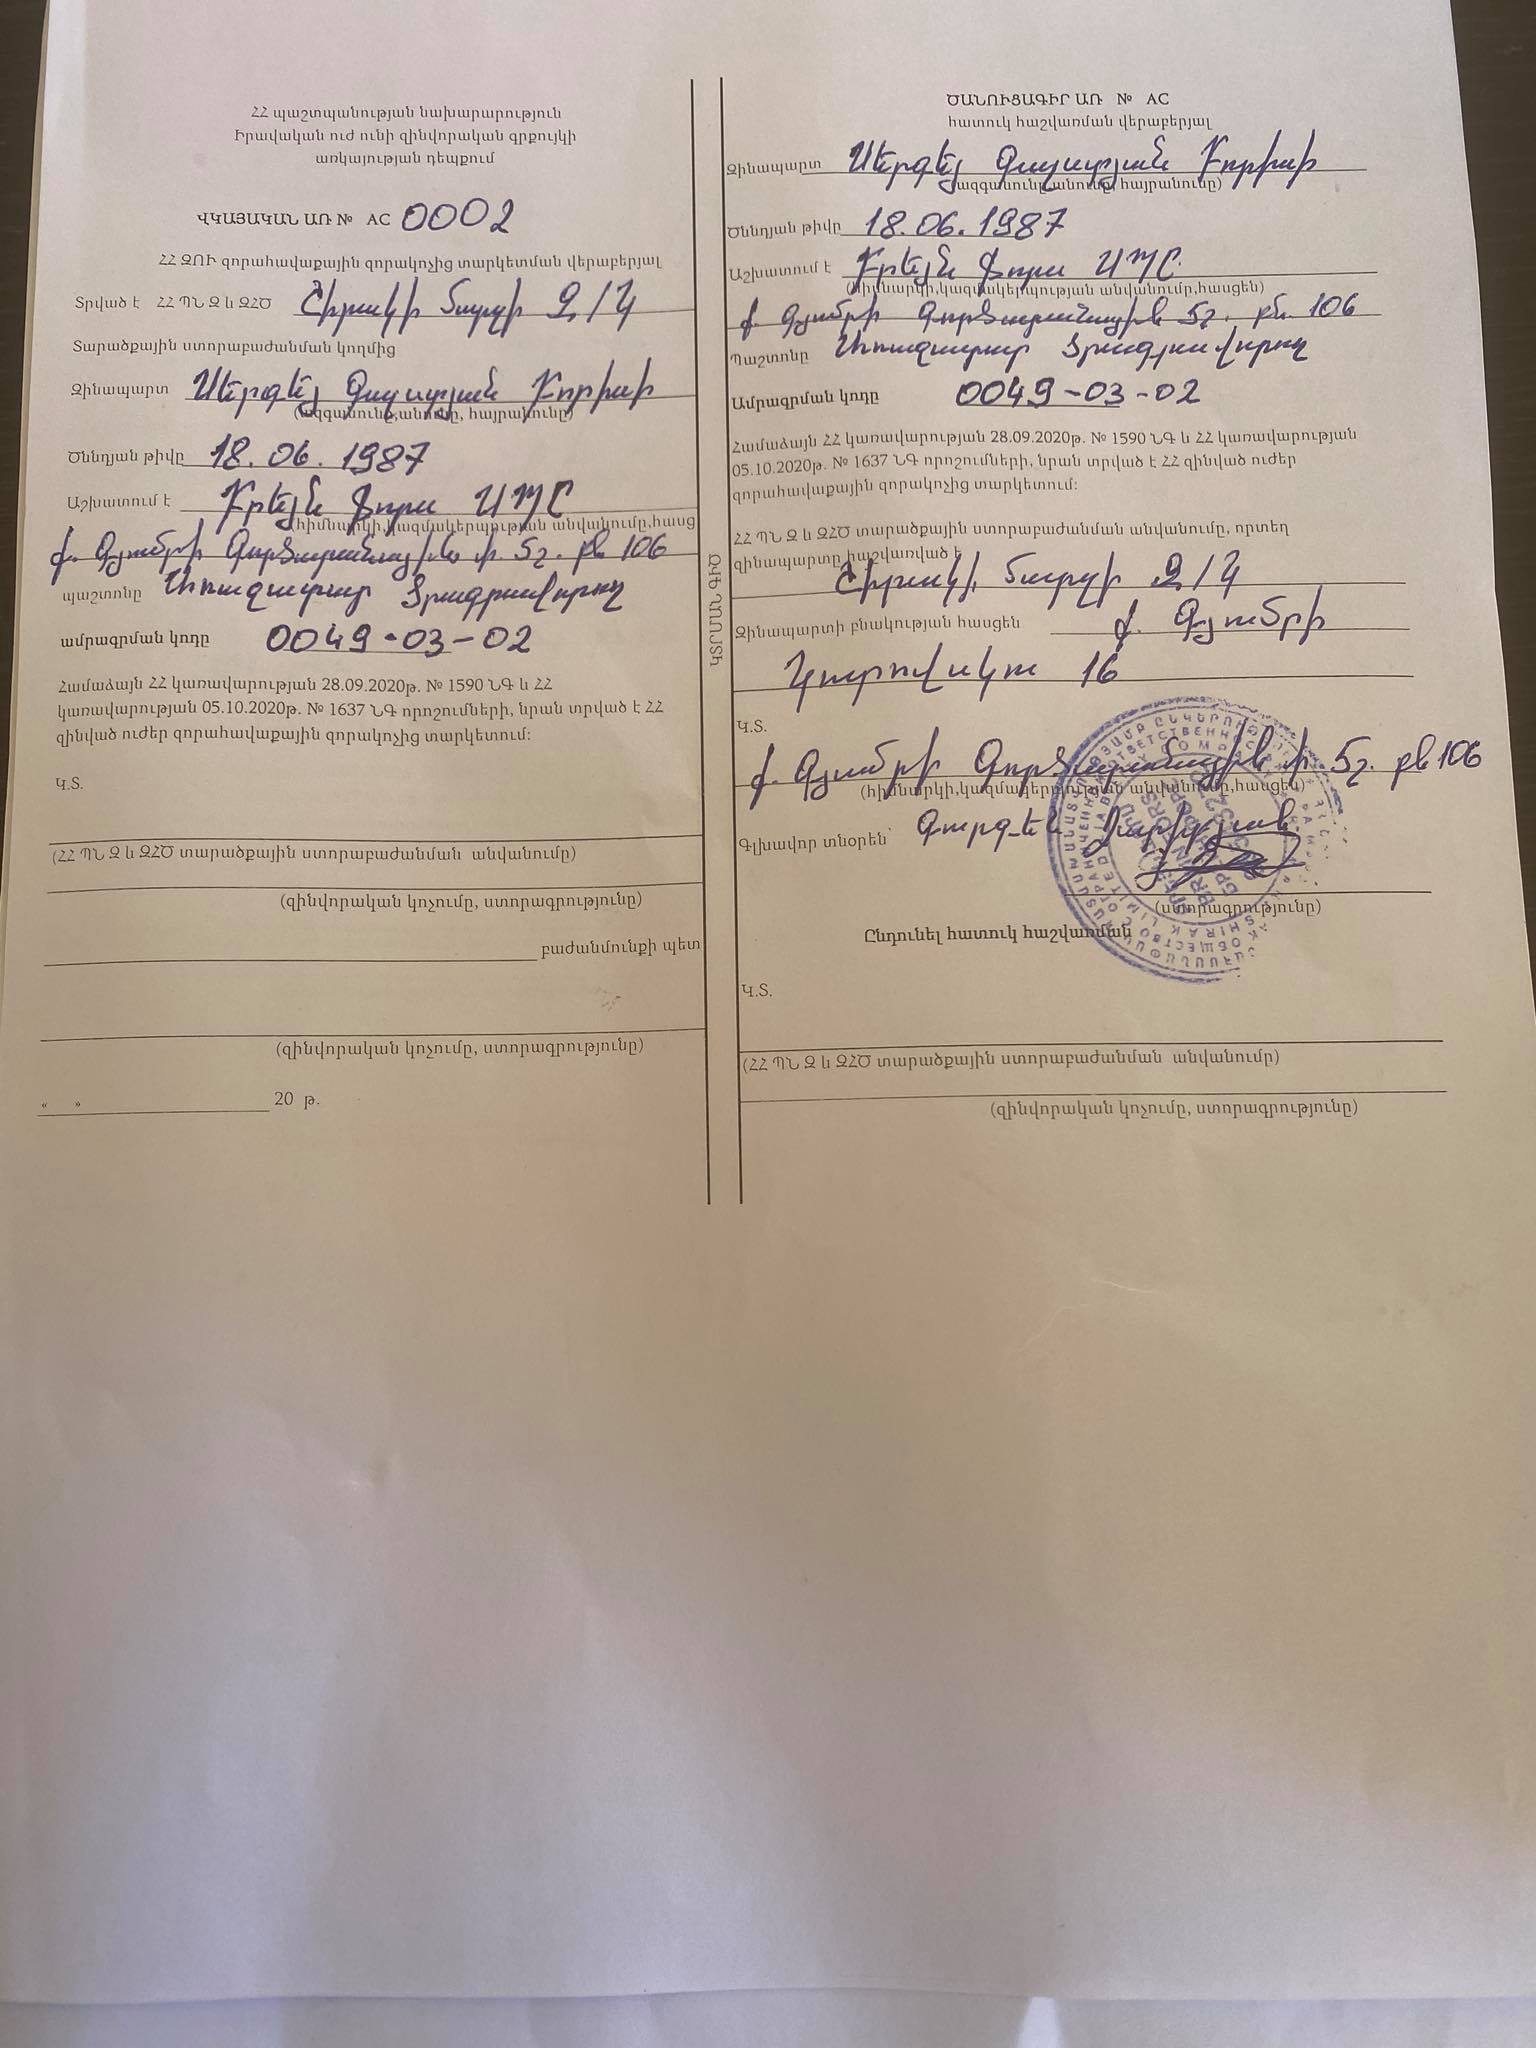 ՀՀ պաշտպանության նախարարություն
Իրավական ուժ ունի զինվորական գրքույկի
առկայության դեպքում
ՎԿԱՅԱԿԱՆ ԱՌ № AC 0002
ՀՀ ԶՈՒ զորահավաքային զորակոչից տարկետման վերաբերյալ
Տրված է ՀՀ ՊՆ Զ և ԶՀԾ Շիրակի մարզի Զ/Կ
Տարածքային ստորաբաժանման կողմից
Զինապարտ Սերգեյ
(ազգանունը,անունը, հայրանունը)
Ծննդյան թիվը 18.06.1987
Աշխատում է Բրեյն Ֆորս ՍՊԸ
հիմնարկի,կազմակերպության անվանումը,հասց
ք. Գյումրի փ. 5շ. բն 106
պաշտոնը Առաջատար ծրագրավորող
ամրագրման կոդը 0049-03-02
Համաձայն ՀՀ կառավարության 28.09.2020թ. № 1590 ՆԳ և ՀՀ
կառավարության 05.10.2020թ. № 1637 ՆԳ որոշումների, նրան տրված է ՀՀ
զինված ուժեր զորահավաքային զորակոչից տարկետում:
Կ.Տ.
(ՀՀ ՊՆ Զ և ԶՀԾ տարածքային ստորաբաժանման անվանումը)
(զինվորական կոչումը, ստորագրությունը)
բաժանմունքի պետ
(զինվորական կոչումը, ստորագրությունը)
« » 20 թ.
ԿՏՐՄԱՆ ԳԻԾ
ԾԱՆՈՒՑԱԳԻՐ ԱՌ № AC
հատուկ հաշվառման վերաբերյալ
Զինապարտ Սերգեյ
(ազգանունը,անունը, հայրանունը)
Ծննդյան թիվը 18.06.1987
Աշխատում է Բրեյն Ֆորս ՍՊԸ
(հիմնարկի,կազմակերպության անվանումը,հասցեն)
ք. Գյումրի 5շ. բն. 106
Պաշտոնը Առաջատար ծրագրավորող
Ամրագրման կոդը 0049-03-02
Համաձայն ՀՀ կառավարության 28.09.2020թ. № 1590 ՆԳ և ՀՀ կառավարության
05.10.2020թ. № 1637 ՆԳ որոշումների, նրան տրված է ՀՀ զինված ուժեր
զորահավաքային զորակոչից տարկետում:
ՀՀ ՊՆ Զ և ԶՀԾ տարածքային ստորաբաժանման անվանումը, որտեղ
զինապարտը հաշվառված է
Շիրակի մարզի Զ/Կ
Զինապարտի բնակության հասցեն ք. Գյումրի
16
Կ.Տ.
ք. Գյումրի փ. 5շ. բն 106
(հիմնարկի,կազմակերպության անվանումը,հասցեն)
Գլխավոր տնօրեն՝ Գարգեն
(ստորագրությունը)
Ընդունել հատուկ հաշվառման
Կ.Տ.
(ՀՀ ՊՆ Զ և ԶՀԾ տարածքային ստորաբաժանման անվանումը)
(զինվորական կոչումը, ստորագրությունը)